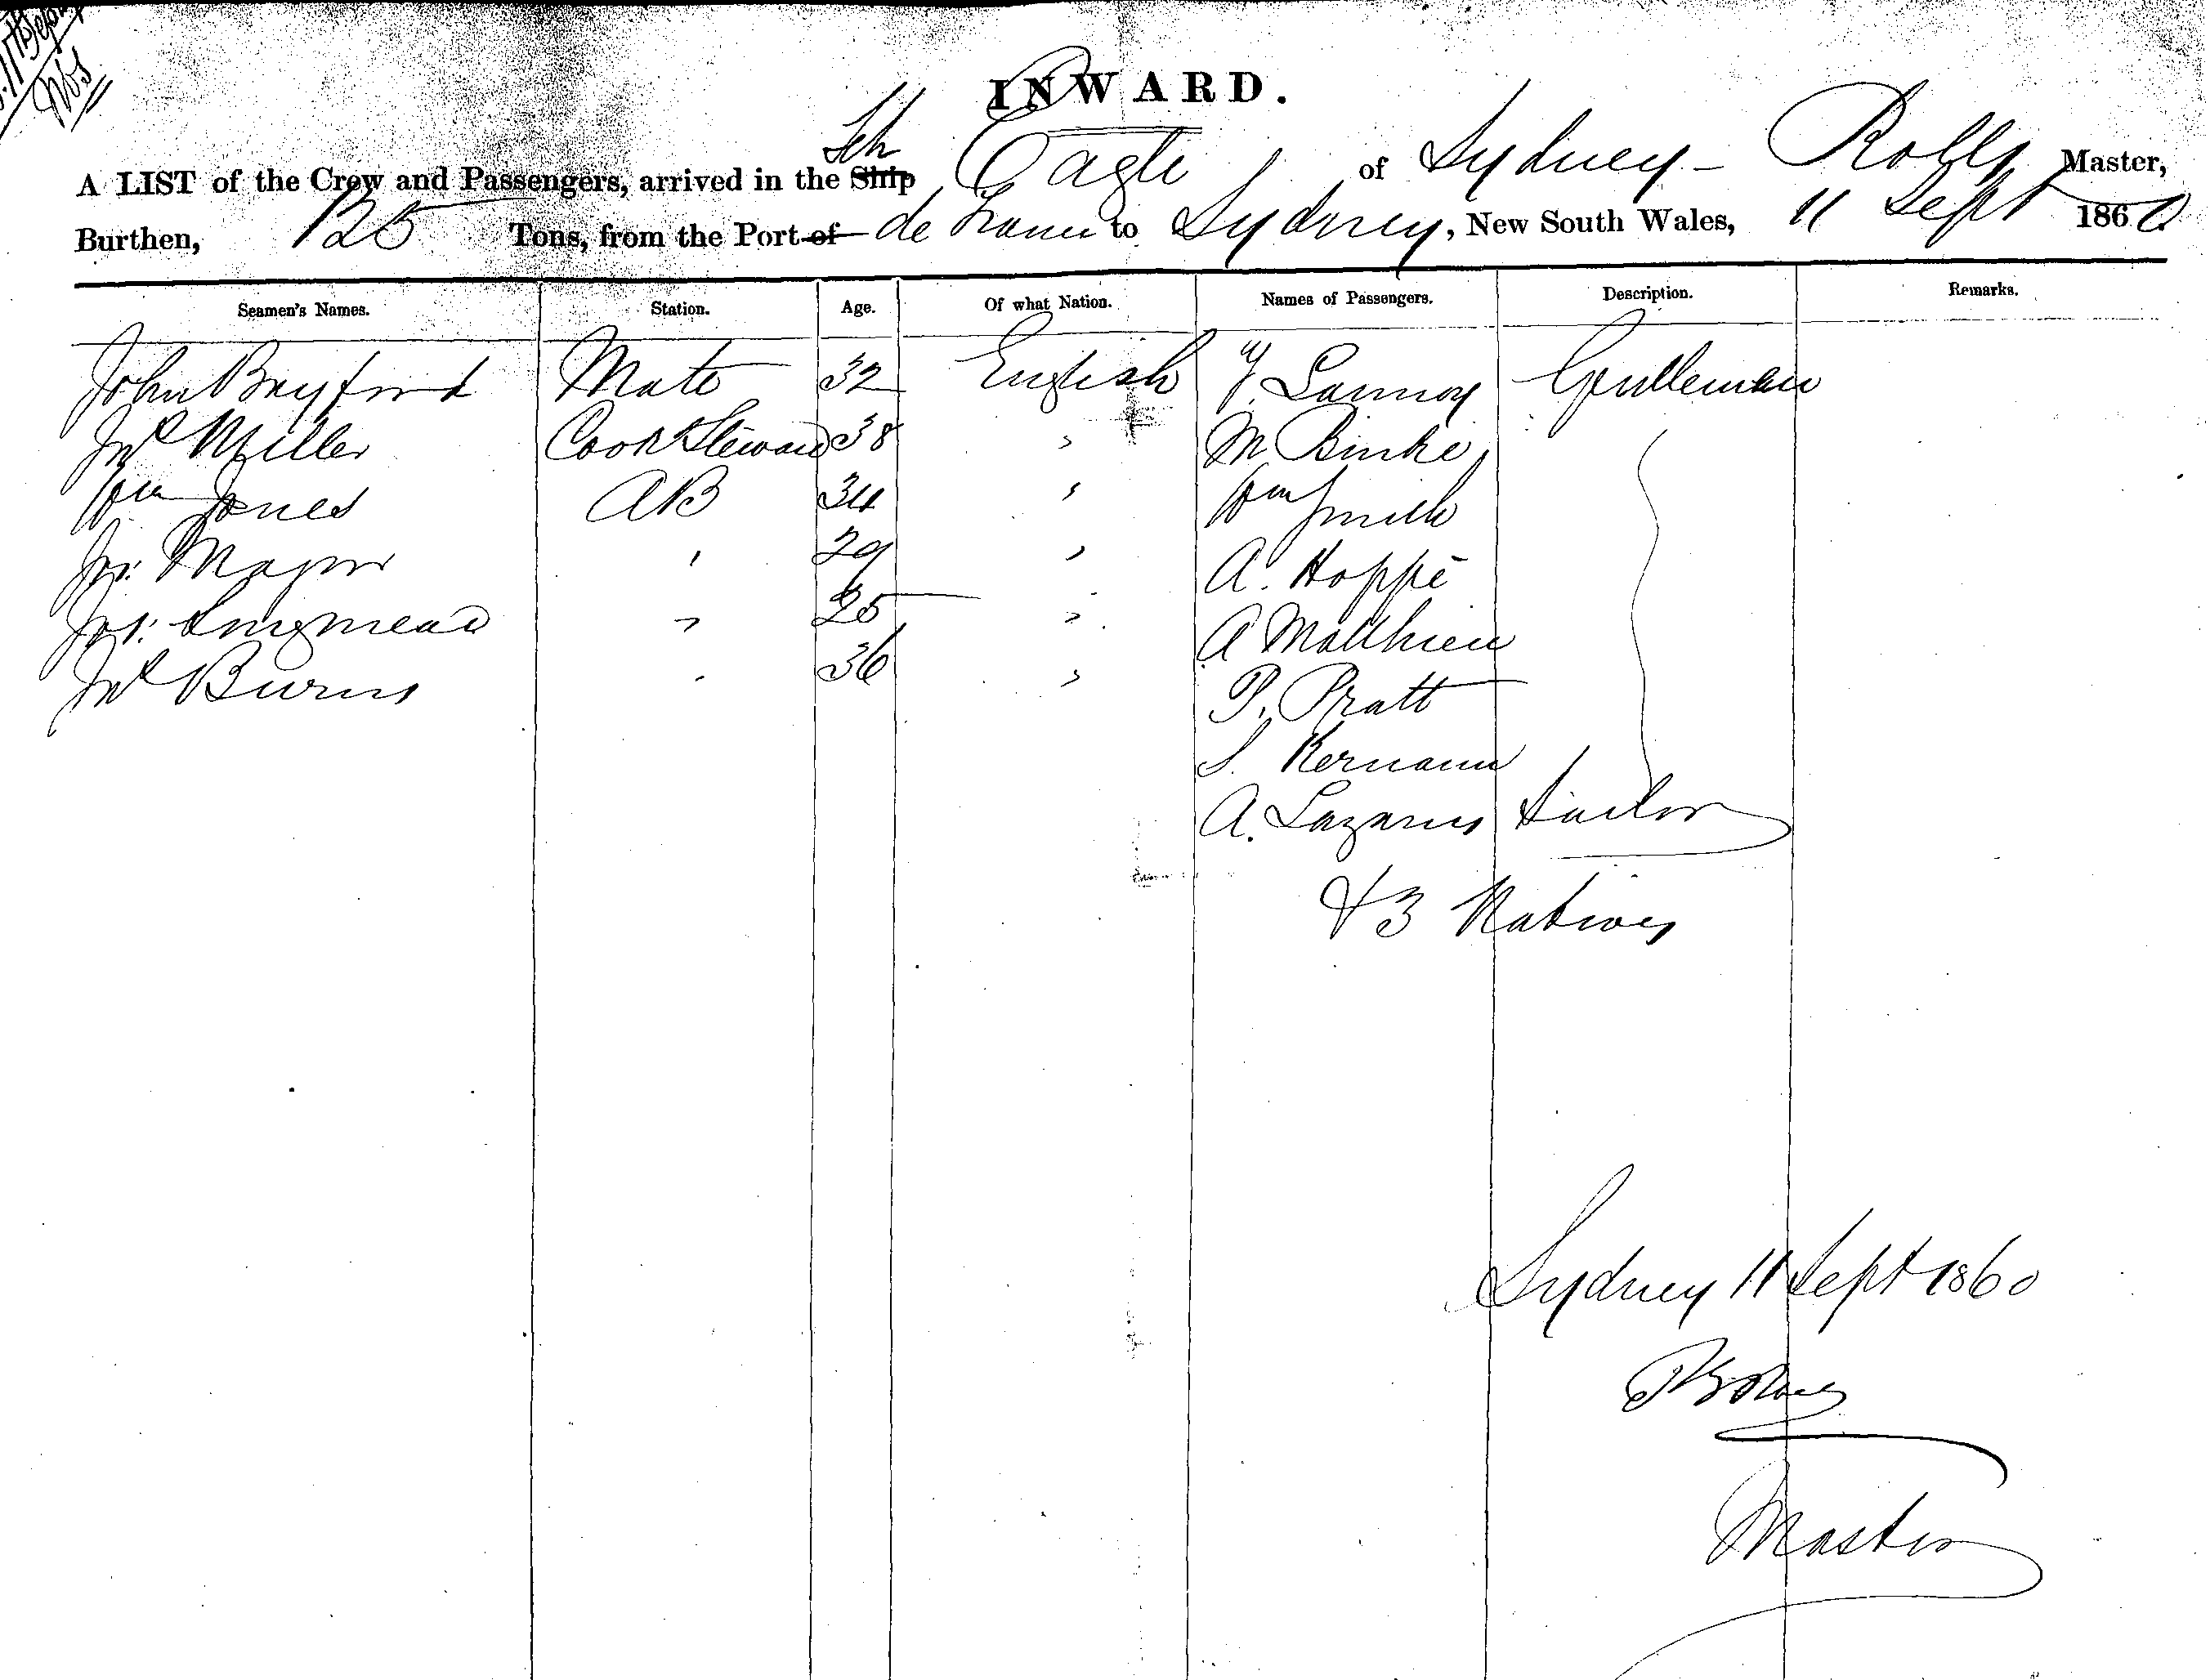 INWARD.
A LIST of the Crew and Passengers, arrived in the Ship Sch Eagle of Sydney - Master,
Burthen, 125 Tons, from the Port of de France to Sydney, New South Wales, 11 Sept 1860
Seamen's Names. Station. Age. Of what Nation. Names of Passengers. Description. Remarks.
John Bayford Mate 32 English Y. Lannoy Gentleman
Jno Miller Cook & Steward 38 " M Binke
Wm Jones AB 34 " Wm Smith
Major " 29 " A. Hoppé
" 25 " A Matthieu
Jno Burns " 36 " P. Pratt
S. Kermann
A. Lazarus Tailor
& 3 Natives
Sydney 11 Sept 1860
Master